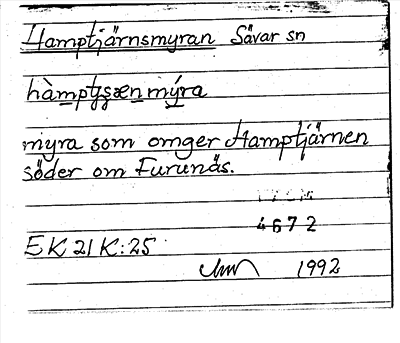 Hamptjärnsmyran Sävar sn
hàmptʂæn mýra
myra som omger Hamptjärnen
söder om Furunäs.
4672
EK 21K:25
1992